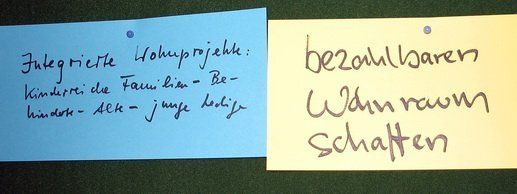 Integrierte Wohnprojekte:
Kinderreiche Familien - Be-
hinderte - Alte - junge Ledige
bezahlbaren
Wohnraum
schaffen